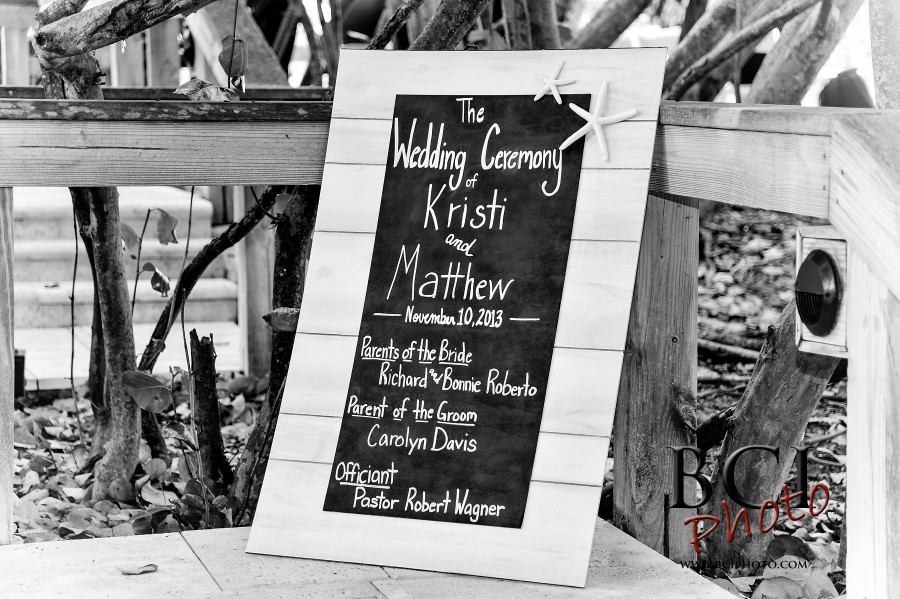 The
Wedding Ceremony
of
Kristi
and
Matthew
November 10, 2013
Parents of the Bride
Richard & Bonnie Roberto
Parent of the Groom
Carolyn Davis
Officiant
Pastor Robert Wagner
BCI
Photo
www.bciphoto.com